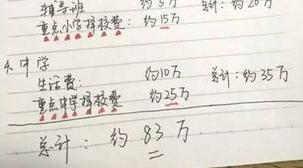 辅导班 约5万 总计：约20万
重点小学择校费：约15万
4. 中学
生活费： 约10万 总计：约35万
重点中学择校费 约25万
总计：约83万